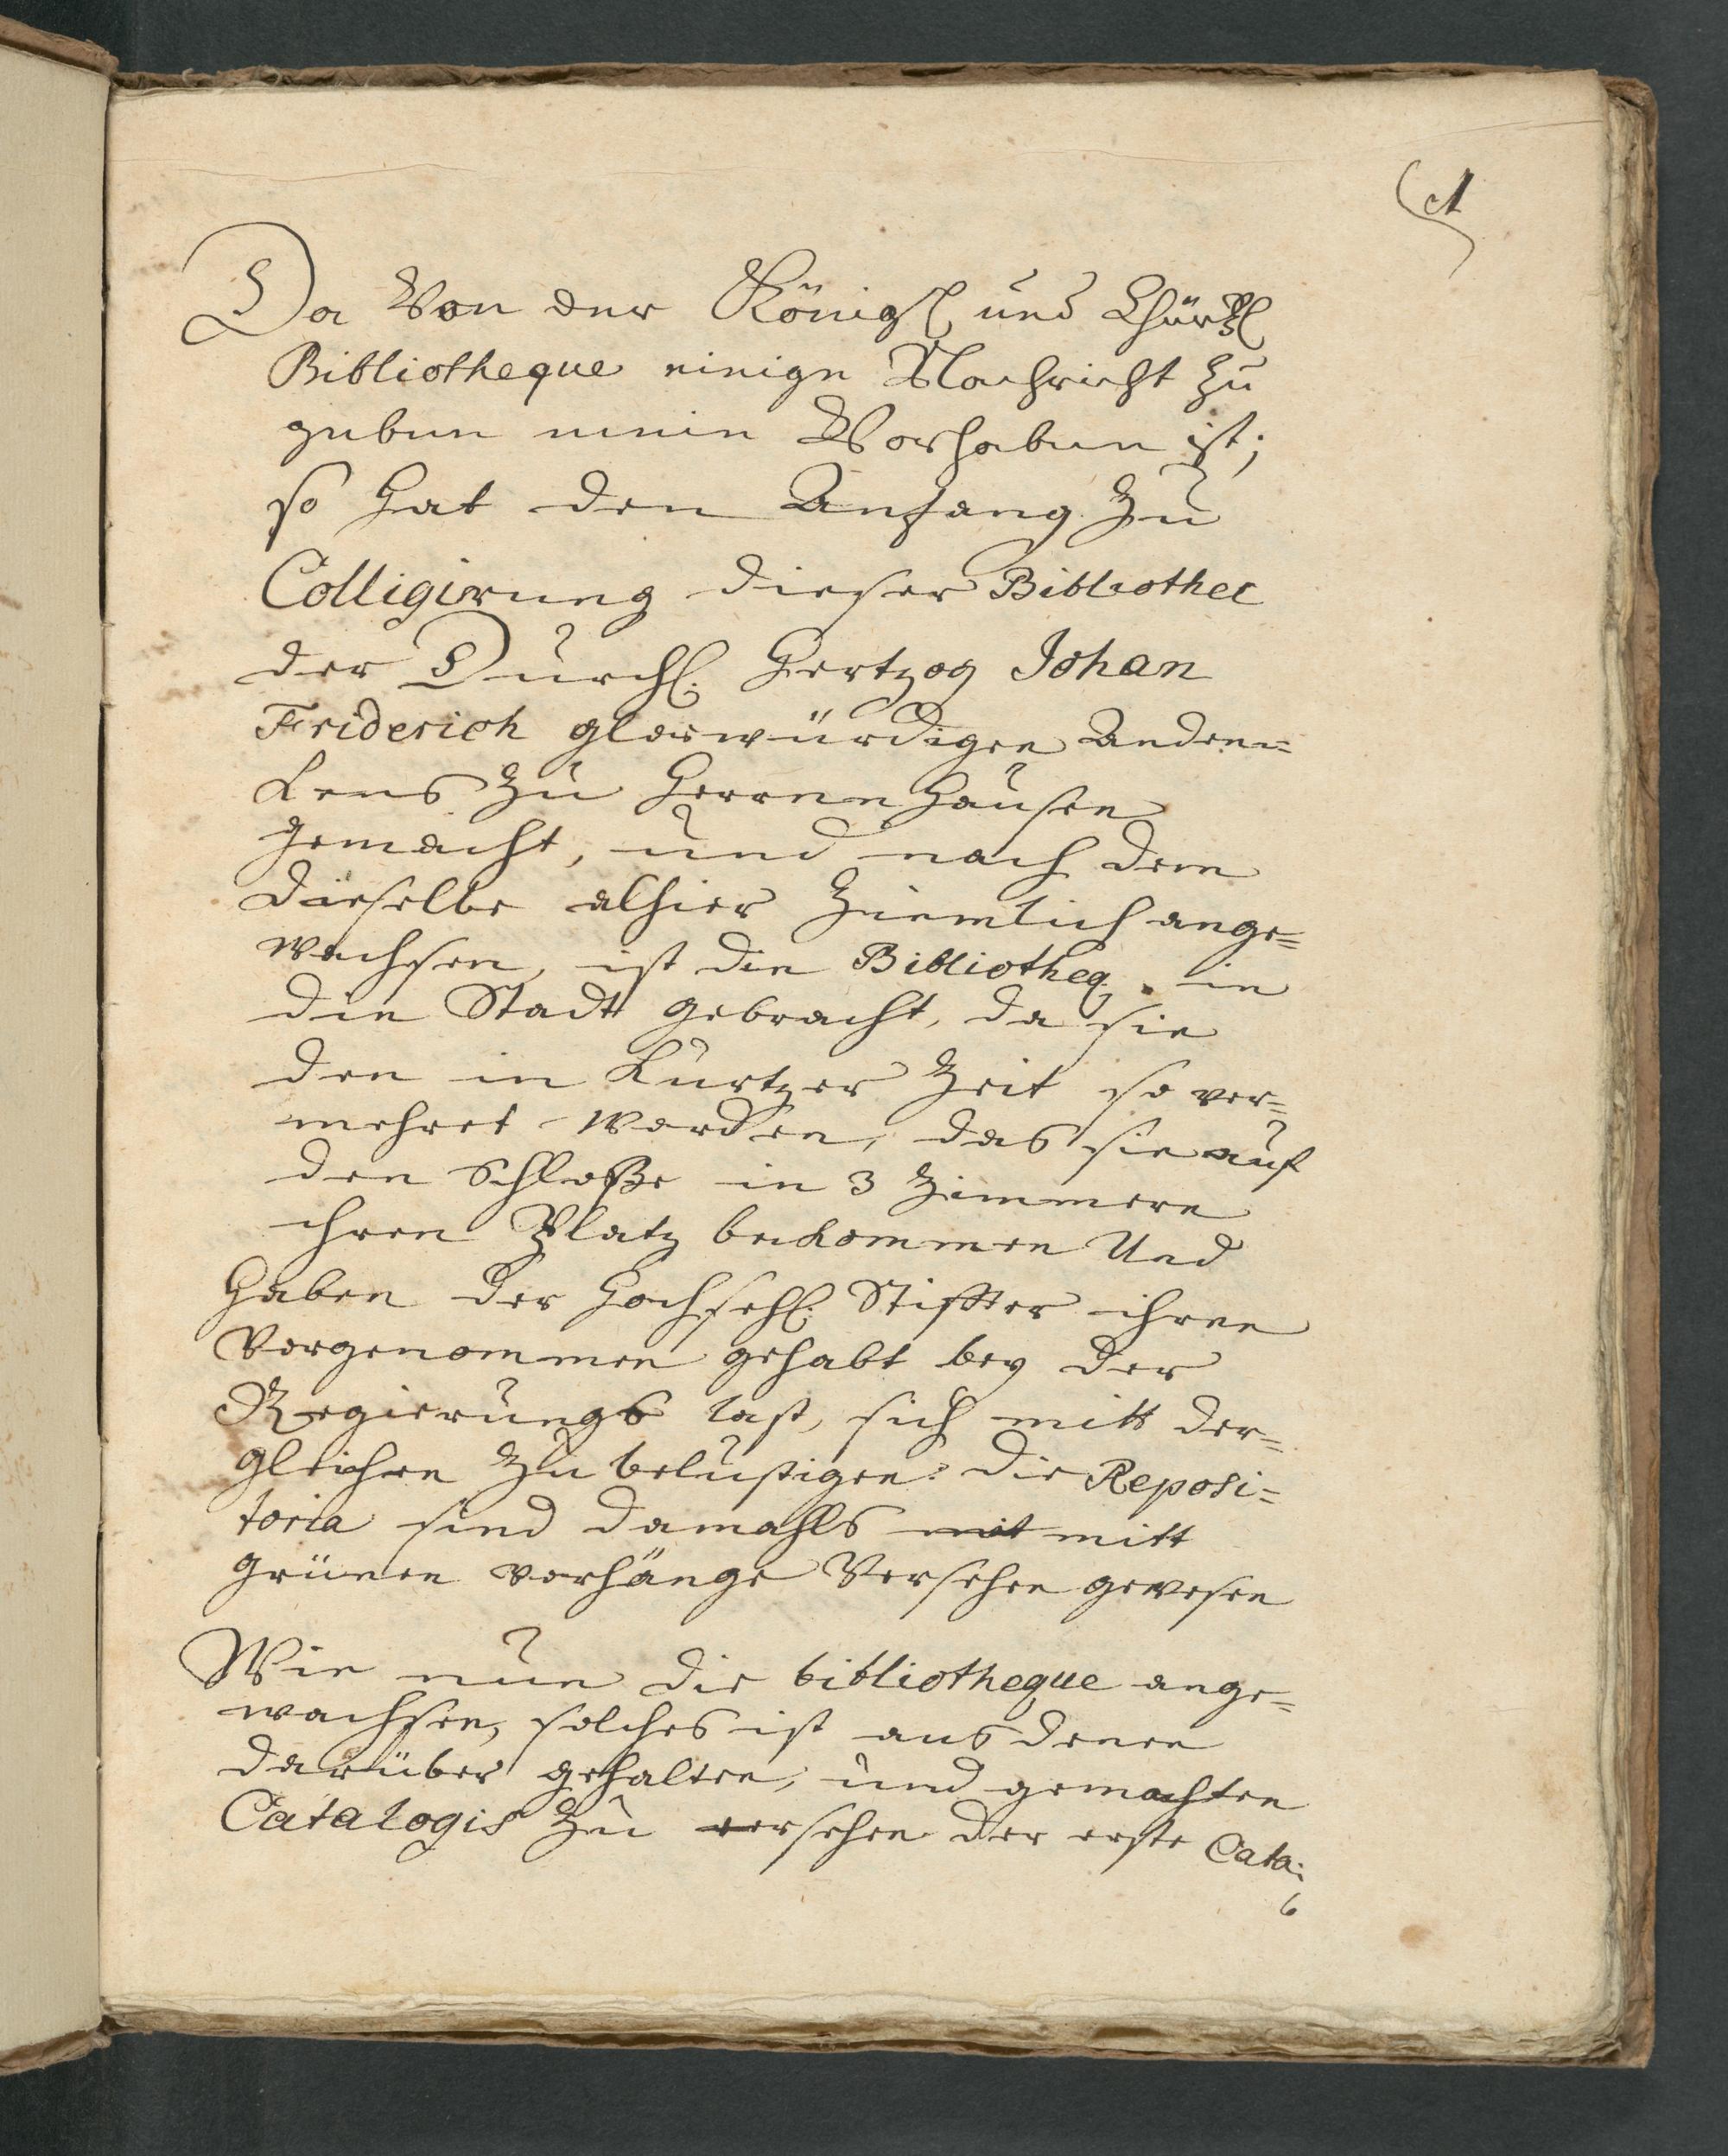 1
Da Von der Königl und Chürfl
Bibliotheque einige Nachricht zu
geben mein Vorhaben ist;
so hat den Anfang zu
Colligirung dieser Bibliothec
der Durchl. Hertzog Johan
Friderich glorwürdigen Anden=
kens zu Herrenhausen
gemacht, und nach dem
dieselbe alhier ziemlich ange=
wachsen, ist die Bibliotheq. in
die Stadt gebracht, da sie
den in kurtzer Zeit so ver=
mehret worden, das sie auf
den Schloße in 3 Zimmern
ihren Platz bekommen Und
haben der Hochsehl. Stiffter ihren
Vorgenommen gehabt bey der
Regierungs last, sich mitt der=
gleichen zu belustigen: die Reposi=
toria sind damahls mit mitt
grünen vorhänge Versehen gewesen
Wie nun die bibliotheque ange=
wachsen, solches ist aus denen
darüber gehalten, und gemachten
Catalogis zu ersehen der erste Cata:
6